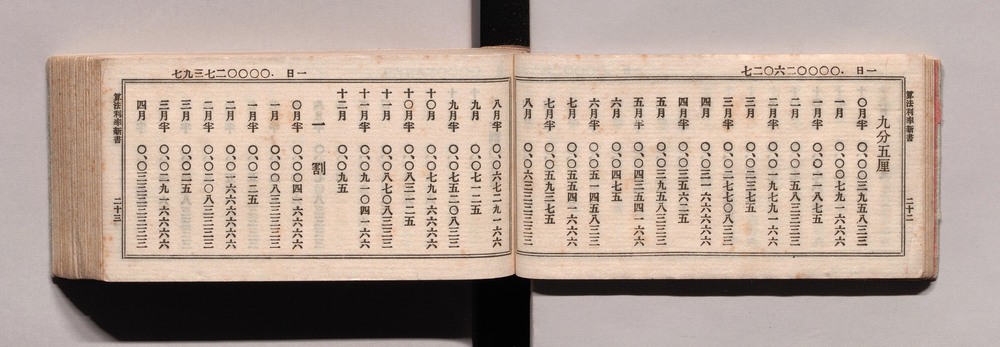 一日 .〇〇〇〇二六〇二七
算法利率新書 二十二
九分五厘
〇月半 〇、〇〇三九五八三三
一月 〇、〇〇七九一六六六
一月半 〇、〇一一八七五
二月 〇、〇一五八三三三三
二月半 〇、〇一九七九一六六
三月 〇、〇二三七五
三月半 〇、〇二七七〇八三三
四月 〇、〇三一六六六六六
四月半 〇、〇三五六二五
五月 〇、〇三九五八三三三
五月半 〇、〇四三五四一六六
六月 〇、〇四七五
六月半 〇、〇五一四五八三三
七月 〇、〇五五四一六六六
七月半 〇、〇五九三七五
八月 〇、〇六三三三三三三
一日 .〇〇〇〇二七三九七
八月半 〇、〇六七二九一六六
九月 〇、〇七一二五
九月半 〇、〇七五二〇八三三
十〇月 〇、〇七九一六六六六
十〇月半 〇、〇八三一二五
十一月 〇、〇八七〇八三三三
十一月半 〇、〇九一〇四一六六
十二月 〇、〇九五
一割
〇月半 〇、〇〇四一六六六六
一月 〇、〇〇八三三三三三
一月半 〇、〇一二五
二月 〇、〇一六六六六六六
二月半 〇、〇二〇八三三三三
三月 〇、〇二五
三月半 〇、〇二九一六六六六
四月 〇、〇三三三三三三三
算法利率新書 二十三